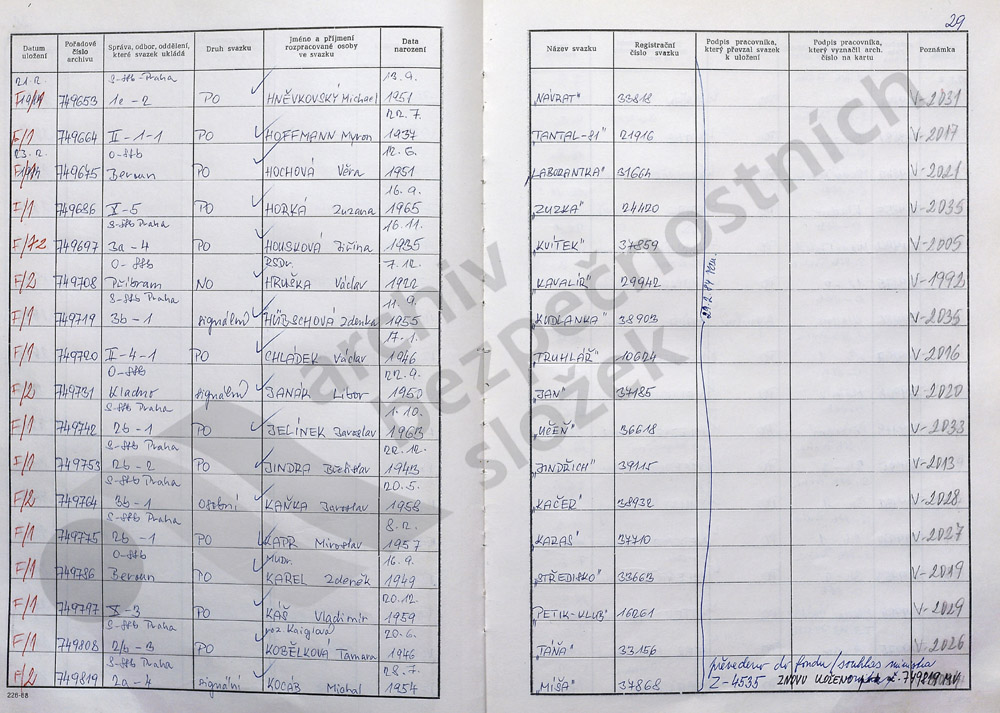 29
Datum uložení Pořadové číslo archivu Správa, odbor, oddělení, které svazek ukládá Druh svazku Jméno a příjmení rozpracované osoby ve svazku Data narození Název svazku Registrační číslo svazku Podpis pracovníka, který převzal svazek k uložení Podpis pracovníka, který vyznačil arch. číslo na kartu Poznámka
21.2. S-StB-Praha 13.9.
749653 1e-2 PO HNĚVKOVSKÝ Michael 1951 „NÁVRAT" 33818 V-2031
22.7.
F/1 749664 II-1-1 PO HOFFMANN Myron 1937 „TANTAL-81" 21916 V-2017
23.2. O-StB 12.6.
749675 Beroun PO HOCHOVÁ Věra 1951 „LABORANTKA" 31664 V-2021
16.9.
F/1 749686 X-5 PO HORKÁ Zuzana 1965 „ZUZKA" 24120 V-2035
S-StB Praha 16.11.
749697 3a-4 PO HOUSKOVÁ Jiřina 1935 „KVÍTEK" 37859 V-2005
O-StB RSDr. 7.12.
F/2 749708 Příbram NO HRUŠKA Václav 1922 „KAVALÍR" 29942 V-1992
S-StB Praha 11.9.
F/1 749719 3b-1 signální HÜBSCHOVÁ Zdenka 1955 „KUDLANKA" 38903 V-2035
17.1.
F/1 749720 II-4-1 PO CHLÁDEK Václav 1946 „TRUHLÁŘ" 10624 V-2016
O-StB 22.9.
F/2 749731 Kladno signální JANÁK Libor 1950 „JAN" 37185 V-2020
S-StB Praha 1.10.
F/1 749742 2b-1 PO JELÍNEK Jaroslav 1963 „UČEŇ" 36618 V-2033
S-StB Praha 22.12.
F/1 749753 2b-2 PO JINDRA 1943 „JINDŘICH" 39115 V-2013
S-StB Praha 20.5.
F/2 749764 3b-1 osobní KAŇKA Jaroslav 1958 „KAČER" 38932 V-2028
S-StB Praha 8.2.
F/1 749775 2b-1 PO KAPR Miroslav 1957 „KARAS" 37710 V-2027
O-StB MUDr. 16.9.
F/1 749786 Beroun PO KAREL Zdeněk 1949 „STŘEDISKO" 33663 V-2019
20.12.
F/1 749797 X-3 PO KÁŠ Vladimír 1959 „PETIK-KLUB" 16261 V-2029
S-StB Praha roz. 20.6.
F/1 749808 2b-3 PO KOBĚLKOVÁ Tamara 1946 „TÁŇA" 33156 V-2026
S-StB Praha 28.7. převedeno do fondu/souhlas
F/2 749819 2a-4 signální KOCÁB Michal 1954 „MÍŠA" 37868 Z-4535 ZNOVU ULOŽENO 749819 MV
226-68
archiv
bezpečnostních
složek